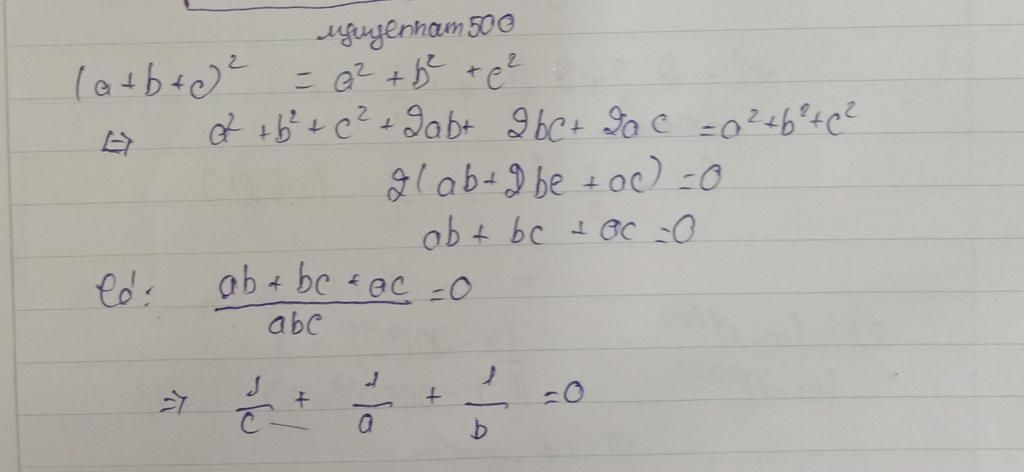 nguyenham500
(a+b+c)² = a² + b² + c²
⇔ a² + b² + c² + 2ab + 2bc + 2ac = a² + b² + c²
2(ab + 2bc + ac) = 0
ab + bc + ac = 0
Có: (ab + bc + ac)/abc = 0
⇒ 1/c + 1/a + 1/b = 0